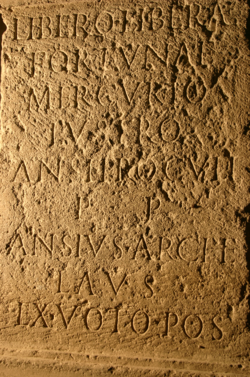 LIBERO LIBERA
FORTVNAE
MERCVRIO
ANSI PROCVLI
P P
ANSIVS·ARCHE
LAVS
EX·VOTO·POS